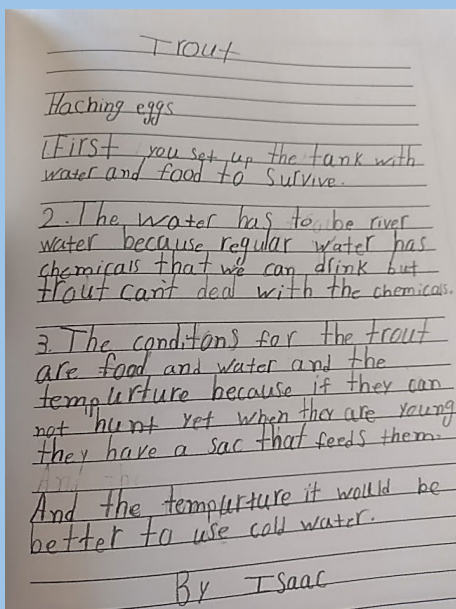 Trout
Haching eggs
1First you set up the tank with
water and food to survive.
2. The water has to be river
water because regular water has
chemicals that we can drink but
trout can't deal with the chemicals.
3. The conditons for the trout
are food and water and the
tempurture because if they can
not hunt yet when they are young
they have a sac that feeds them.
And the tempurture it would be
better to use cold water.
By Isaac